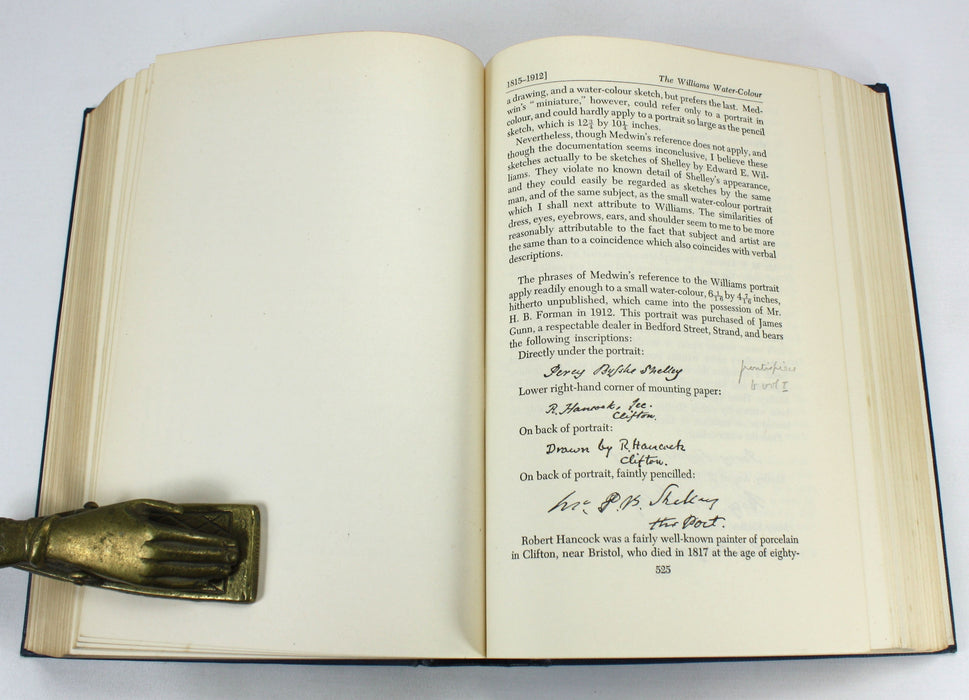 1815–1912] The Williams Water-Colour
a drawing, and a water-colour sketch, but prefers the last. Med-
win's "miniature," however, could refer only to a portrait in
colour, and could hardly apply to a portrait so large as the pencil
sketch, which is 12¾ by 10¼ inches.
Nevertheless, though Medwin's reference does not apply, and
though the documentation seems inconclusive, I believe these
sketches actually to be sketches of Shelley by Edward E. Wil-
liams. They violate no known detail of Shelley's appearance,
and they could easily be regarded as sketches by the same
man, and of the same subject, as the small water-colour portrait
which I shall next attribute to Williams. The similarities of
dress, eyes, eyebrows, ears, and shoulder seem to me to be more
reasonably attributable to the fact that subject and artist are
the same than to a coincidence which also coincides with verbal
descriptions.
The phrases of Medwin's reference to the Williams portrait
apply readily enough to a small water-colour, 6 1/16 by 4 7/16 inches,
hitherto unpublished, which came into the possession of Mr.
H. B. Forman in 1912. This portrait was purchased of James
Gunn, a respectable dealer in Bedford Street, Strand, and bears
the following inscriptions:
Directly under the portrait:
Percy Bysshe Shelley
frontispiece
to vol I
Lower right-hand corner of mounting paper:
R. Hancock, fec.
Clifton.
On back of portrait:
Drawn by R. Hancock
Clifton.
On back of portrait, faintly pencilled:
Mr. P. B. Shelley
the Poet.
Robert Hancock was a fairly well-known painter of porcelain
in Clifton, near Bristol, who died in 1817 at the age of eighty-
525